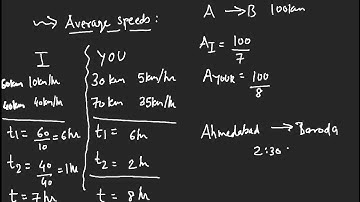 Average speeds :
I
60km 10km/hr
40km 40km/hr
t1 = 60/10 = 6hr
t2 = 40/40 = 1hr
t = 7hr
YOU
30km 5km/hr
70km 35km/hr
t1 = 6hr
t2 = 2hr
t = 8hr
A → B 100km
AI = 100/7
AYOUR = 100/8
Ahmedabad → Baroda
2:30